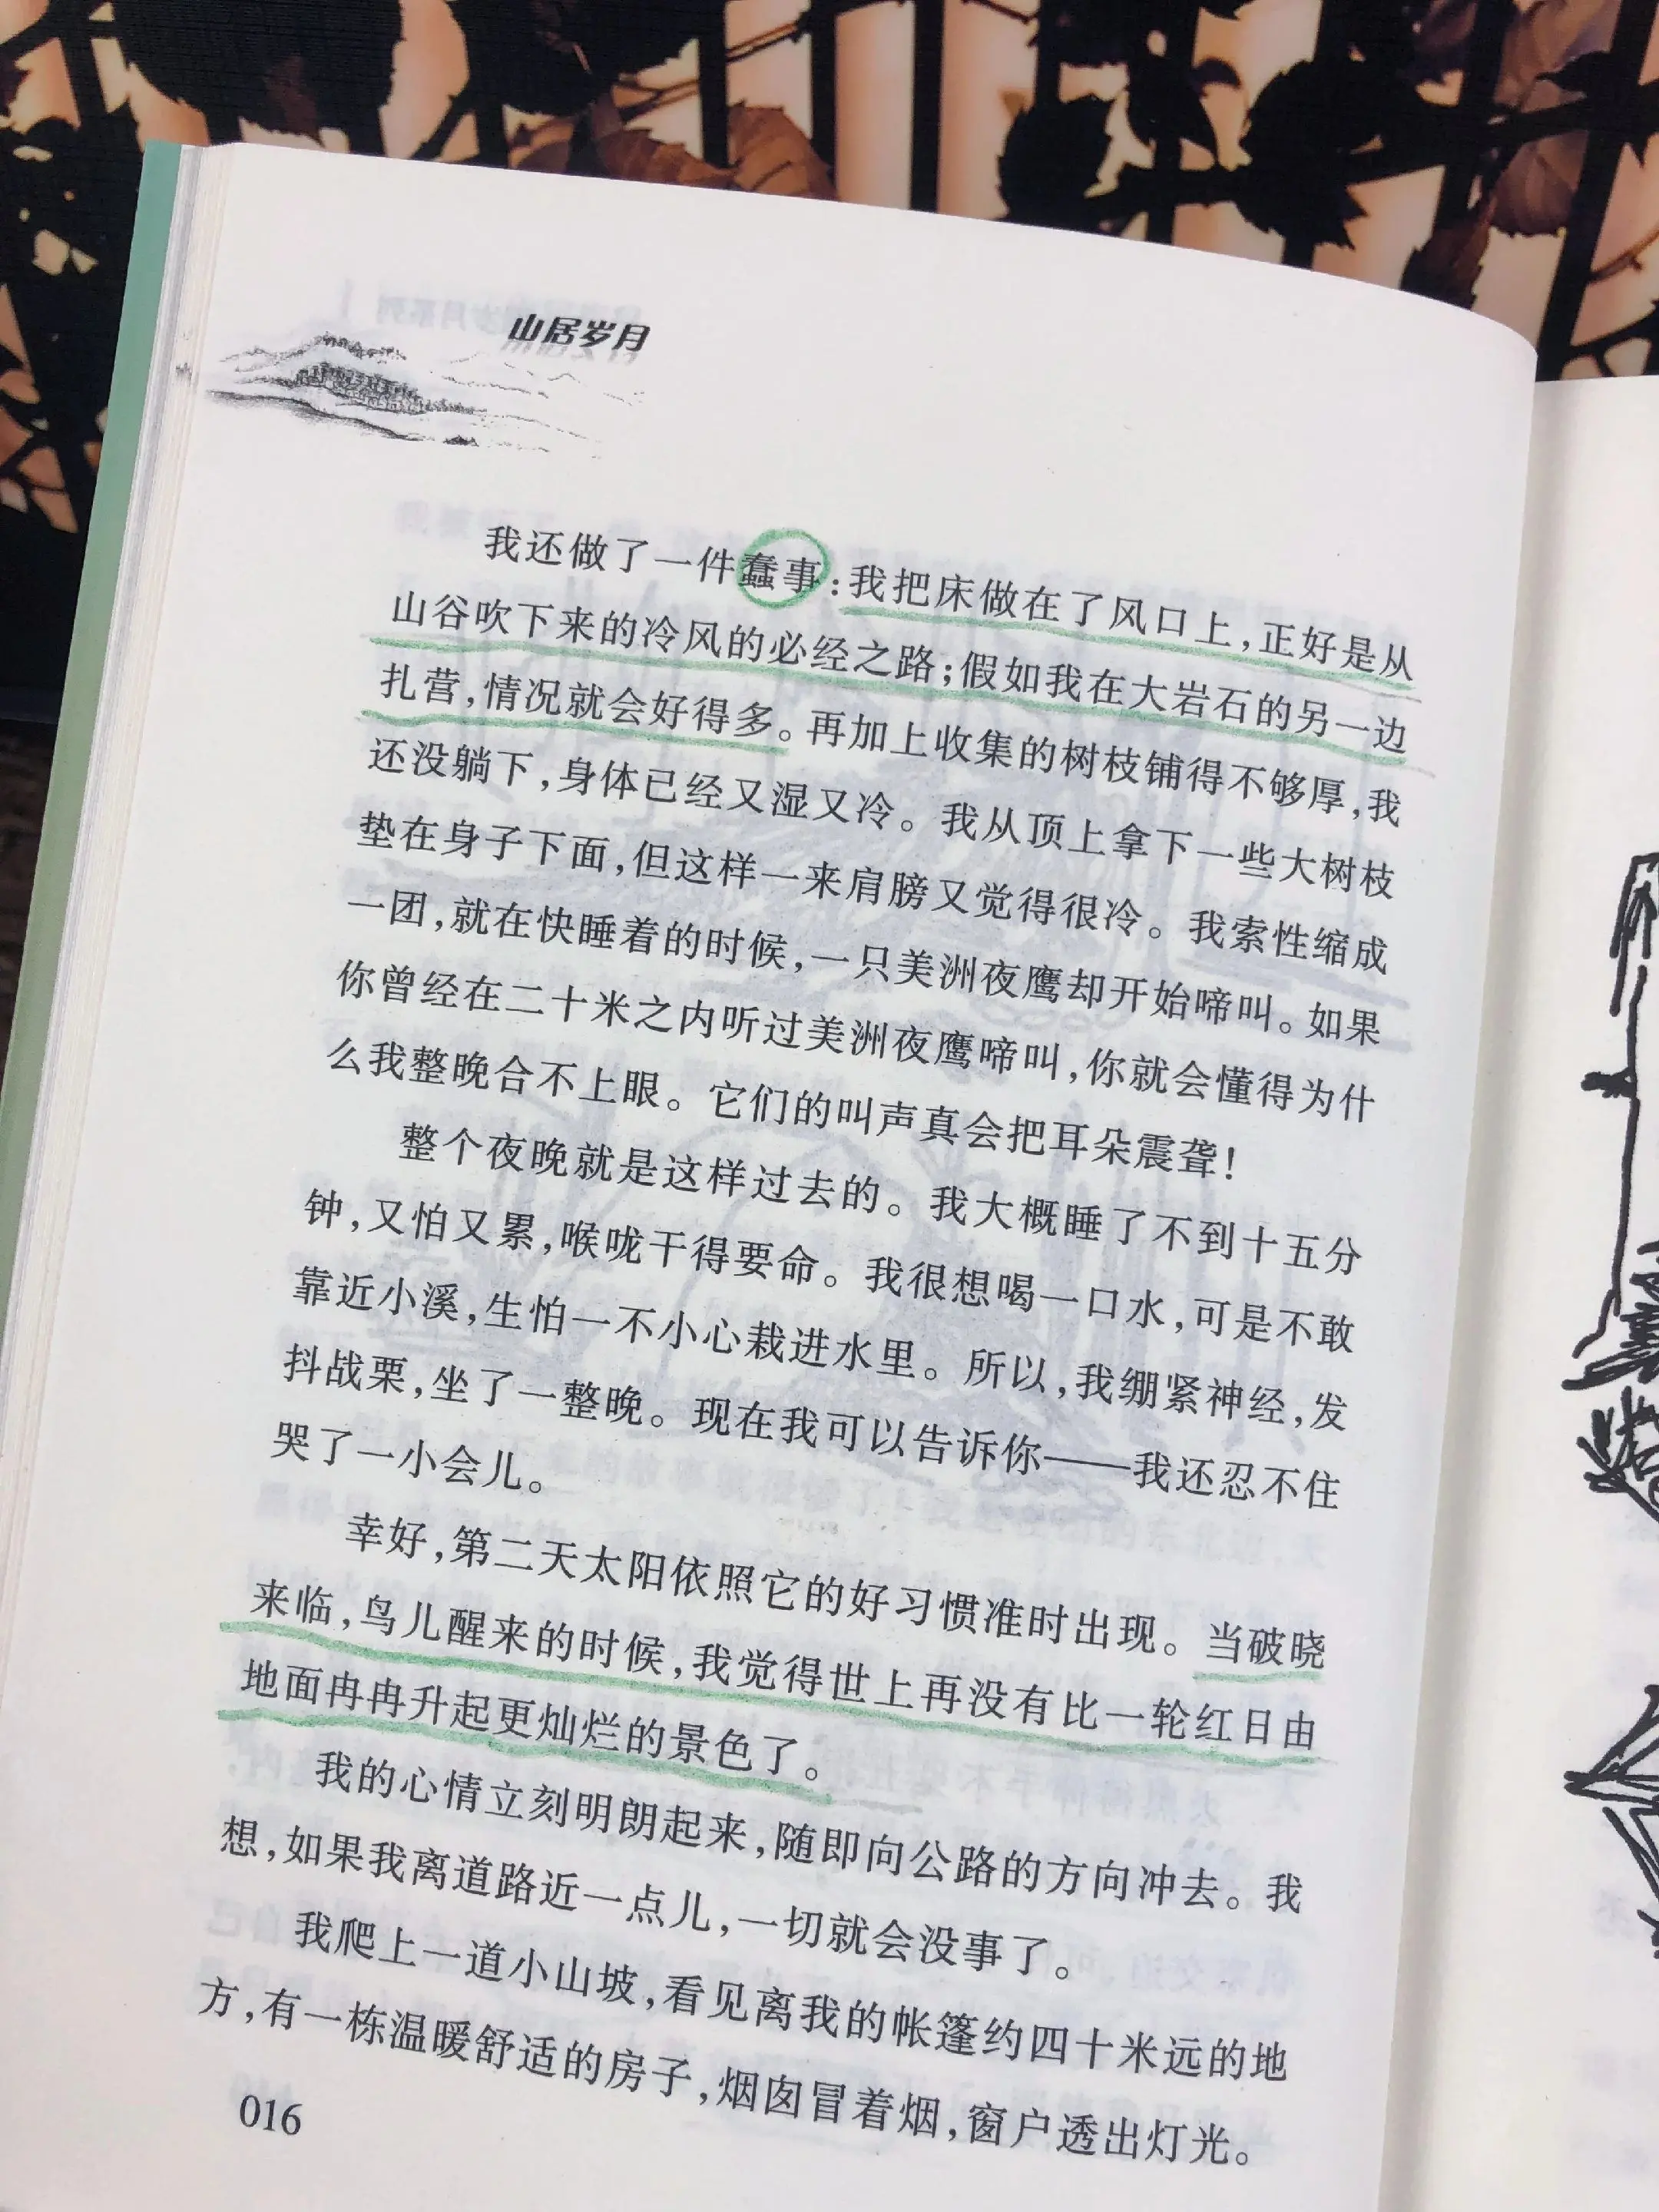 山居岁月
我还做了一件蠢事：我把床做在了风口上，正好是从
山谷吹下来的冷风的必经之路；假如我在大岩石的另一边
扎营，情况就会好得多。再加上收集的树枝铺得不够厚，我
还没躺下，身体已经又湿又冷。我从顶上拿下一些大树枝
垫在身子下面，但这样一来肩膀又觉得很冷。我索性缩成
一团，就在快睡着的时候，一只美洲夜鹰却开始啼叫。如果
你曾经在二十米之内听过美洲夜鹰啼叫，你就会懂得为什
么我整晚合不上眼。它们的叫声真会把耳朵震聋！
整个夜晚就是这样过去的。我大概睡了不到十五分
钟，又怕又累，喉咙干得要命。我很想喝一口水，可是不敢
靠近小溪，生怕一不小心栽进水里。所以，我绷紧神经，发
抖战栗，坐了一整晚。现在我可以告诉你——我还忍不住
哭了一小会儿。
幸好，第二天太阳依照它的好习惯准时出现。当破晓
来临，鸟儿醒来的时候，我觉得世上再没有比一轮红日由
地面冉冉升起更灿烂的景色了。
我的心情立刻明朗起来，随即向公路的方向冲去。我
想，如果我离道路近一点儿，一切就会没事了。
我爬上一道小山坡，看见离我的帐篷约四十米远的地
方，有一栋温暖舒适的房子，烟囱冒着烟，窗户透出灯光。
016